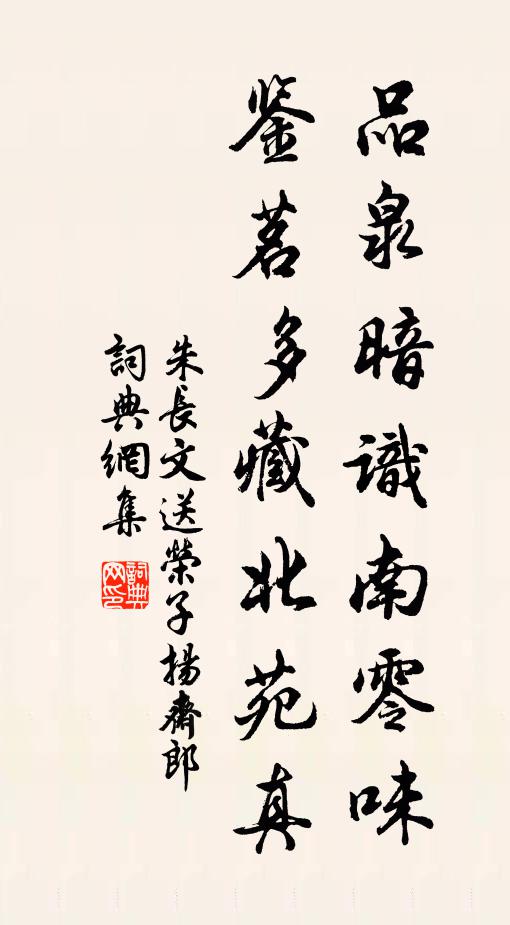 品泉暗識南零味
鉴茗多藏北苑真
朱長文送榮子揚齋郎
詞典網集
詞典网印